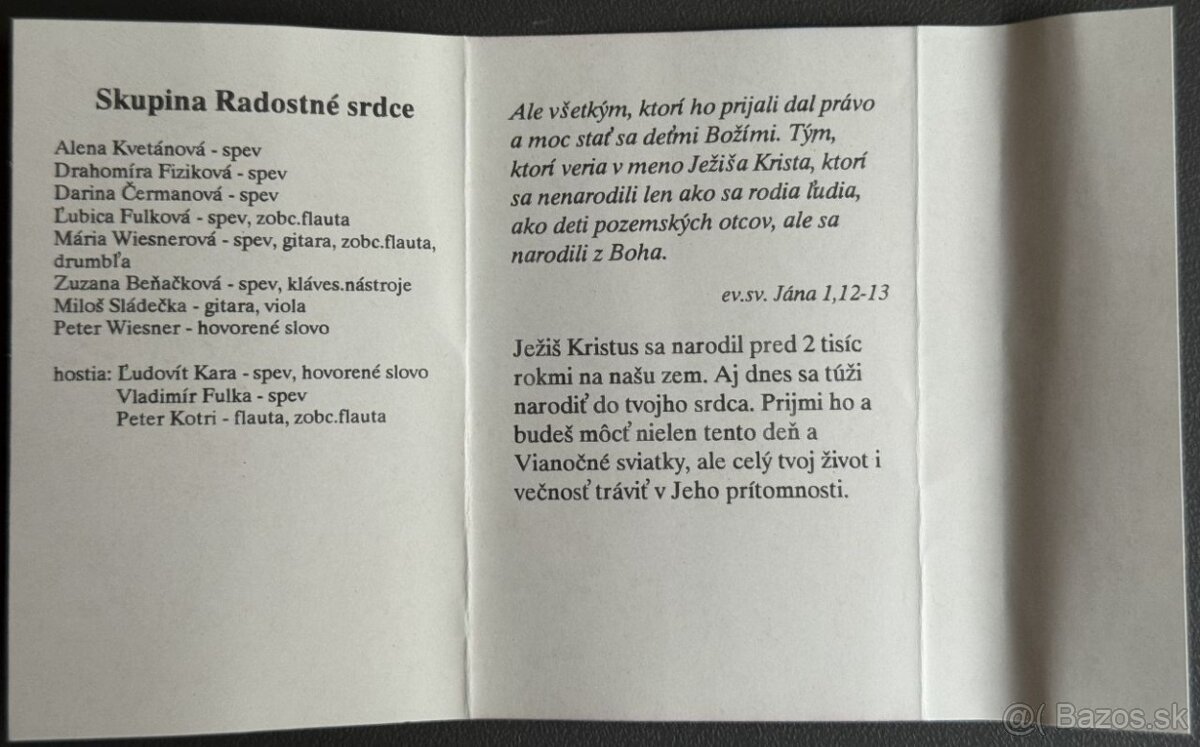 Skupina Radostné srdce
Alena Kvetánová - spev
Drahomíra Fiziková - spev
Darina Čermanová - spev
Ľubica Fulková - spev, zobc.flauta
Mária Wiesnerová - spev, gitara, zobc.flauta,
drumbľa
Zuzana Beňačková - spev, kláves.nástroje
Miloš Sládečka - gitara, viola
Peter Wiesner - hovorené slovo
hostia: Ľudovít Kara - spev, hovorené slovo
Vladimír Fulka - spev
Peter Kotri - flauta, zobc.flauta
Ale všetkým, ktorí ho prijali dal právo
a moc stať sa deťmi Božími. Tým,
ktorí veria v meno Ježiša Krista, ktorí
sa nenarodili len ako sa rodia ľudia,
ako deti pozemských otcov, ale sa
narodili z Boha.
ev.sv. Jána 1,12-13
Ježiš Kristus sa narodil pred 2 tisíc
rokmi na našu zem. Aj dnes sa túži
narodiť do tvojho srdca. Prijmi ho a
budeš môcť nielen tento deň a
Vianočné sviatky, ale celý tvoj život i
večnosť tráviť v Jeho prítomnosti.
@( Bazos.sk